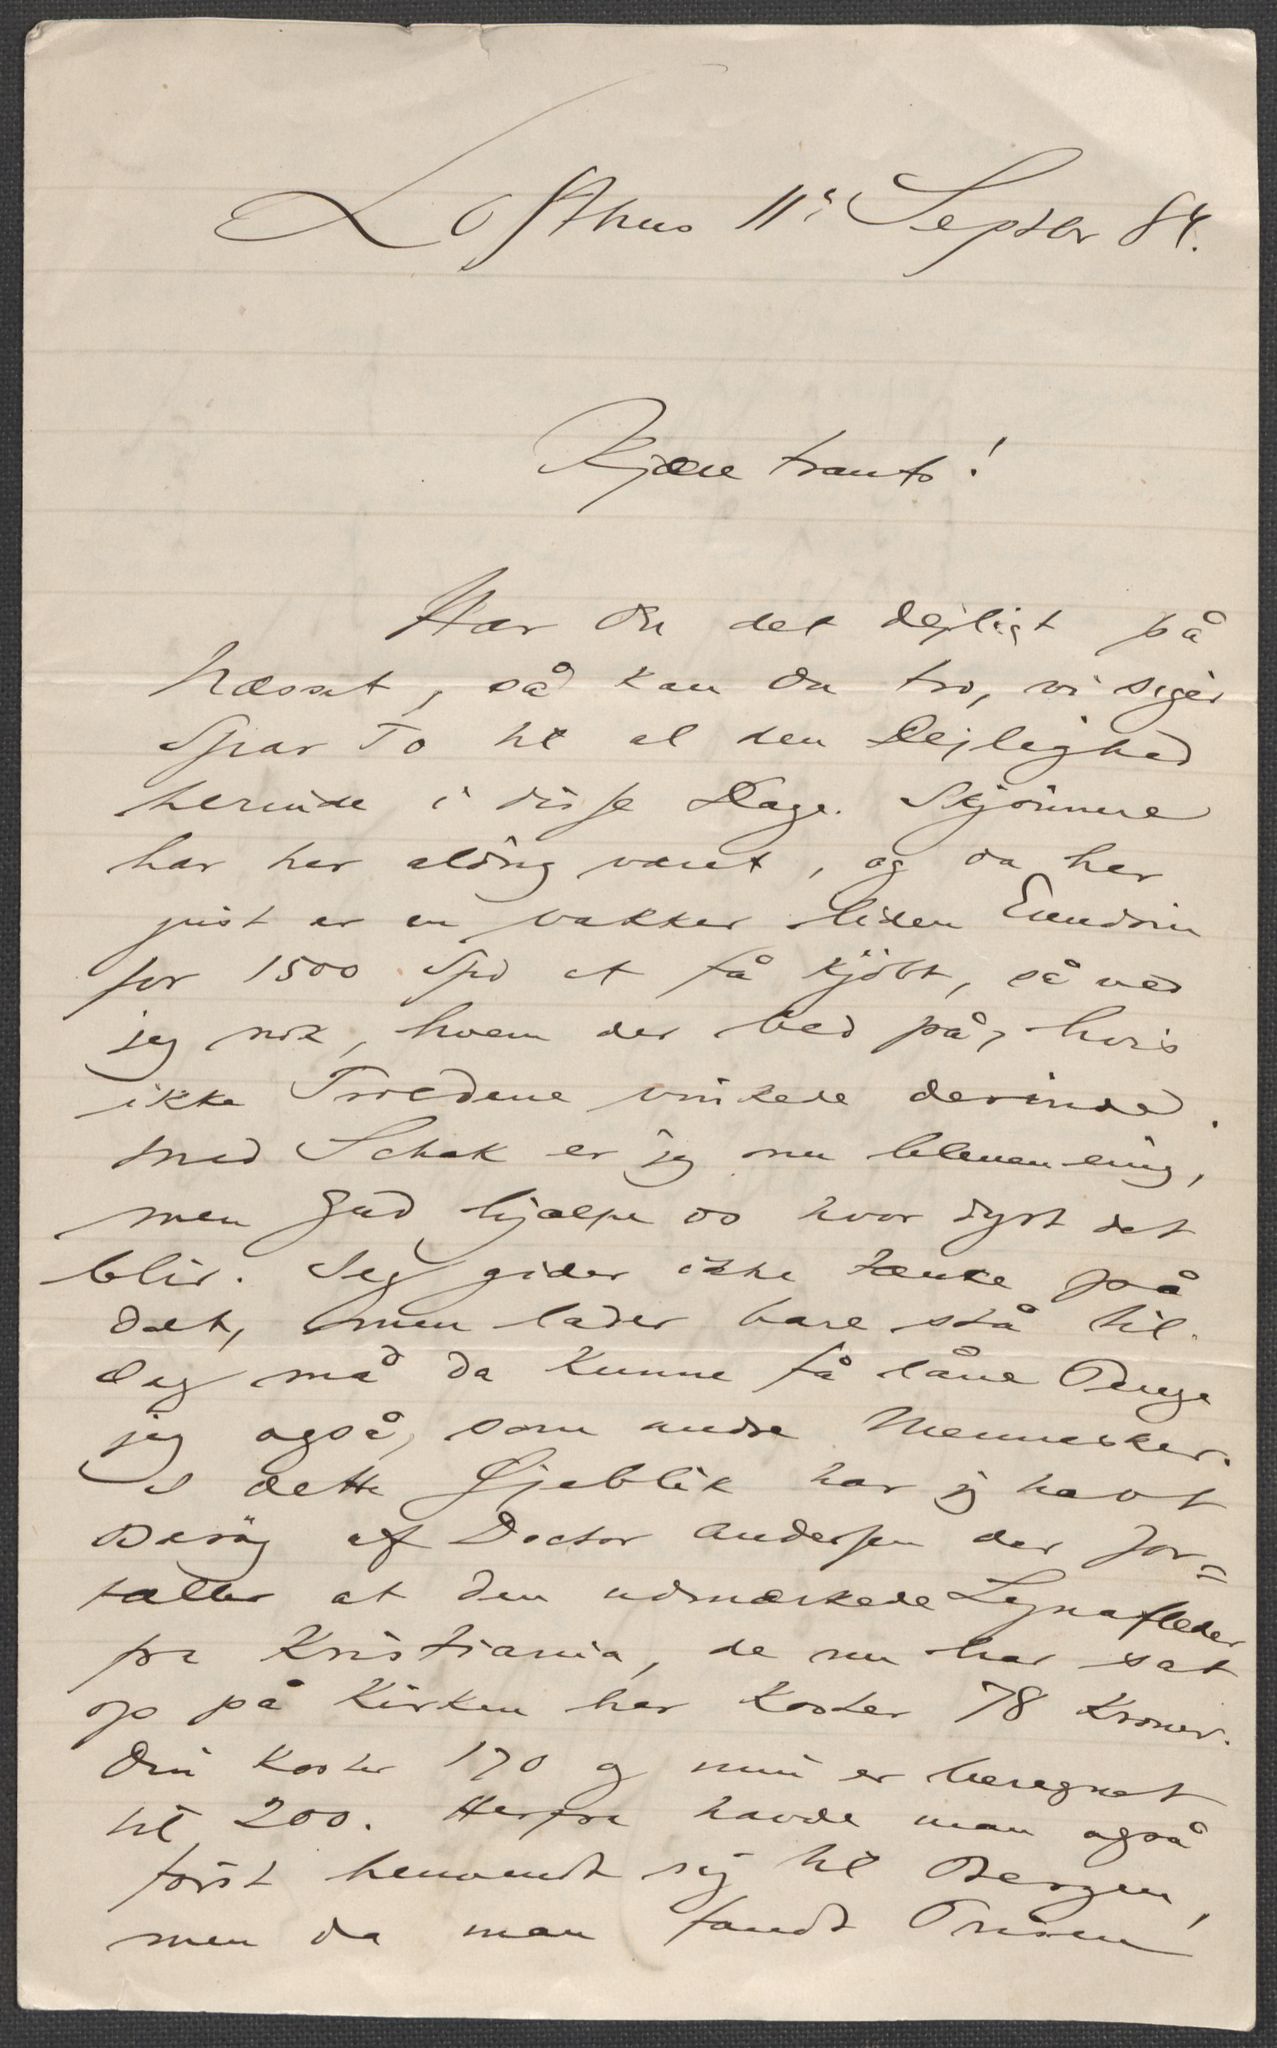 Lofthus 11te Septbr 84.
Kjære Frants!
Har du det dejligt på
Næsset, så kan du tro, vi siger
Spar To til al den Dejlighed
herinde i disse Dage. Skjönnere
har her aldrig været, og da her
just er en vakker liden Eiendom
for 1500 Spd at få kjöbt, så ved
jeg nok, hvem der bed på, hvis
ikke Troldene vinkede derinde.
Med Schak er jeg nu bleven enig,
men Gud hjælpe os hvor dyrt det
blir. Jeg gider ikke tænke på
det, men lader bare stå til.
Jeg må da kunne få låne Penge
jeg også, som andre Mennesker.
I dette Øjeblik har jeg havt
Besög af Doctor Andersen der for=
tæller at den udmærkede Lynafleder
fra Kristiania, de nu har sat
op på Kirken her koster 78 Kroner.
Din koster 170 og min er beregnet
til 200. Herfra havde man også
först henvendt sig til Bergen,
men da man fandt Prisen